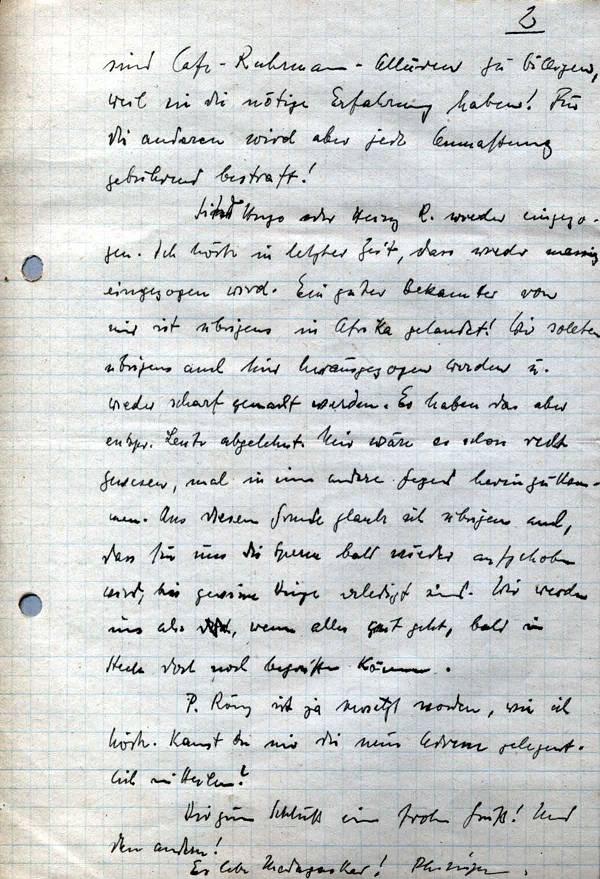 2
sind Cafe-Ruhrmann-Allüren zu billigen,
weil sie die nötige Erfahrung haben! Für
die anderen wird aber jede Anmaßung
gebührend bestraft!
Sind Hugo oder Heinz R. wieder eingezo-
gen. Ich hörte in letzter Zeit, dass wieder massig
eingezogen wird. Ein guter Bekannter von
mir ist übrigens in Afrika gelandet! Wir sollten
übrigens auch hier herausgezogen werden u.
wieder scharf gemacht werden. Es haben das aber
entspr. Leute abgelehnt. Mir wäre es schon recht
gewesen, mal in eine andere Gegend hereinzukom-
men. Aus diesem Grunde glaube ich übrigens auch,
dass für uns die Sperre bald wieder aufgehoben
wird, bis gewisse Dinge erledigt sind. Wir werden
uns also, wenn alles gut geht, bald in
dort noch begrüßen können.
P. ist ja versetzt worden, wie ich
hörte. Kannst Du mir die neue Adresse gelegent-
lich mitteilen?
Dir zum Schluß einen frohen Gruß! Und
den andern!
Es lebe Madagaskar!